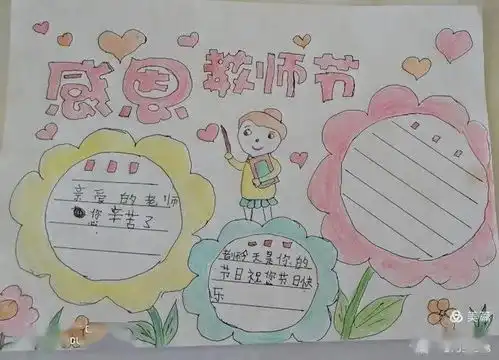 感恩教师节
亲爱的老师
您辛苦了
老师今天是你的
节日祝您节日快
乐
美篇